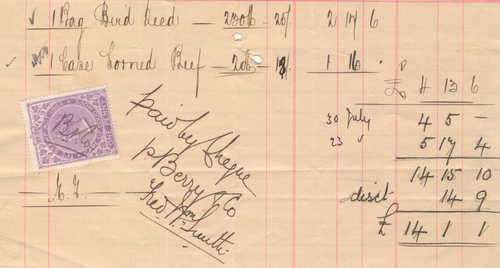 1 Bag Bird Seed — 230lb 25/ 2 17 6
1 Case Corned Beef — 20lb 1 16 -
£ 4 13 6
30 July 4 5 -
23 " 5 17 4
14 15 10
disct 14 9
£ 14 1 1
paid by cheque
p Berry & Co
Geo H Smith